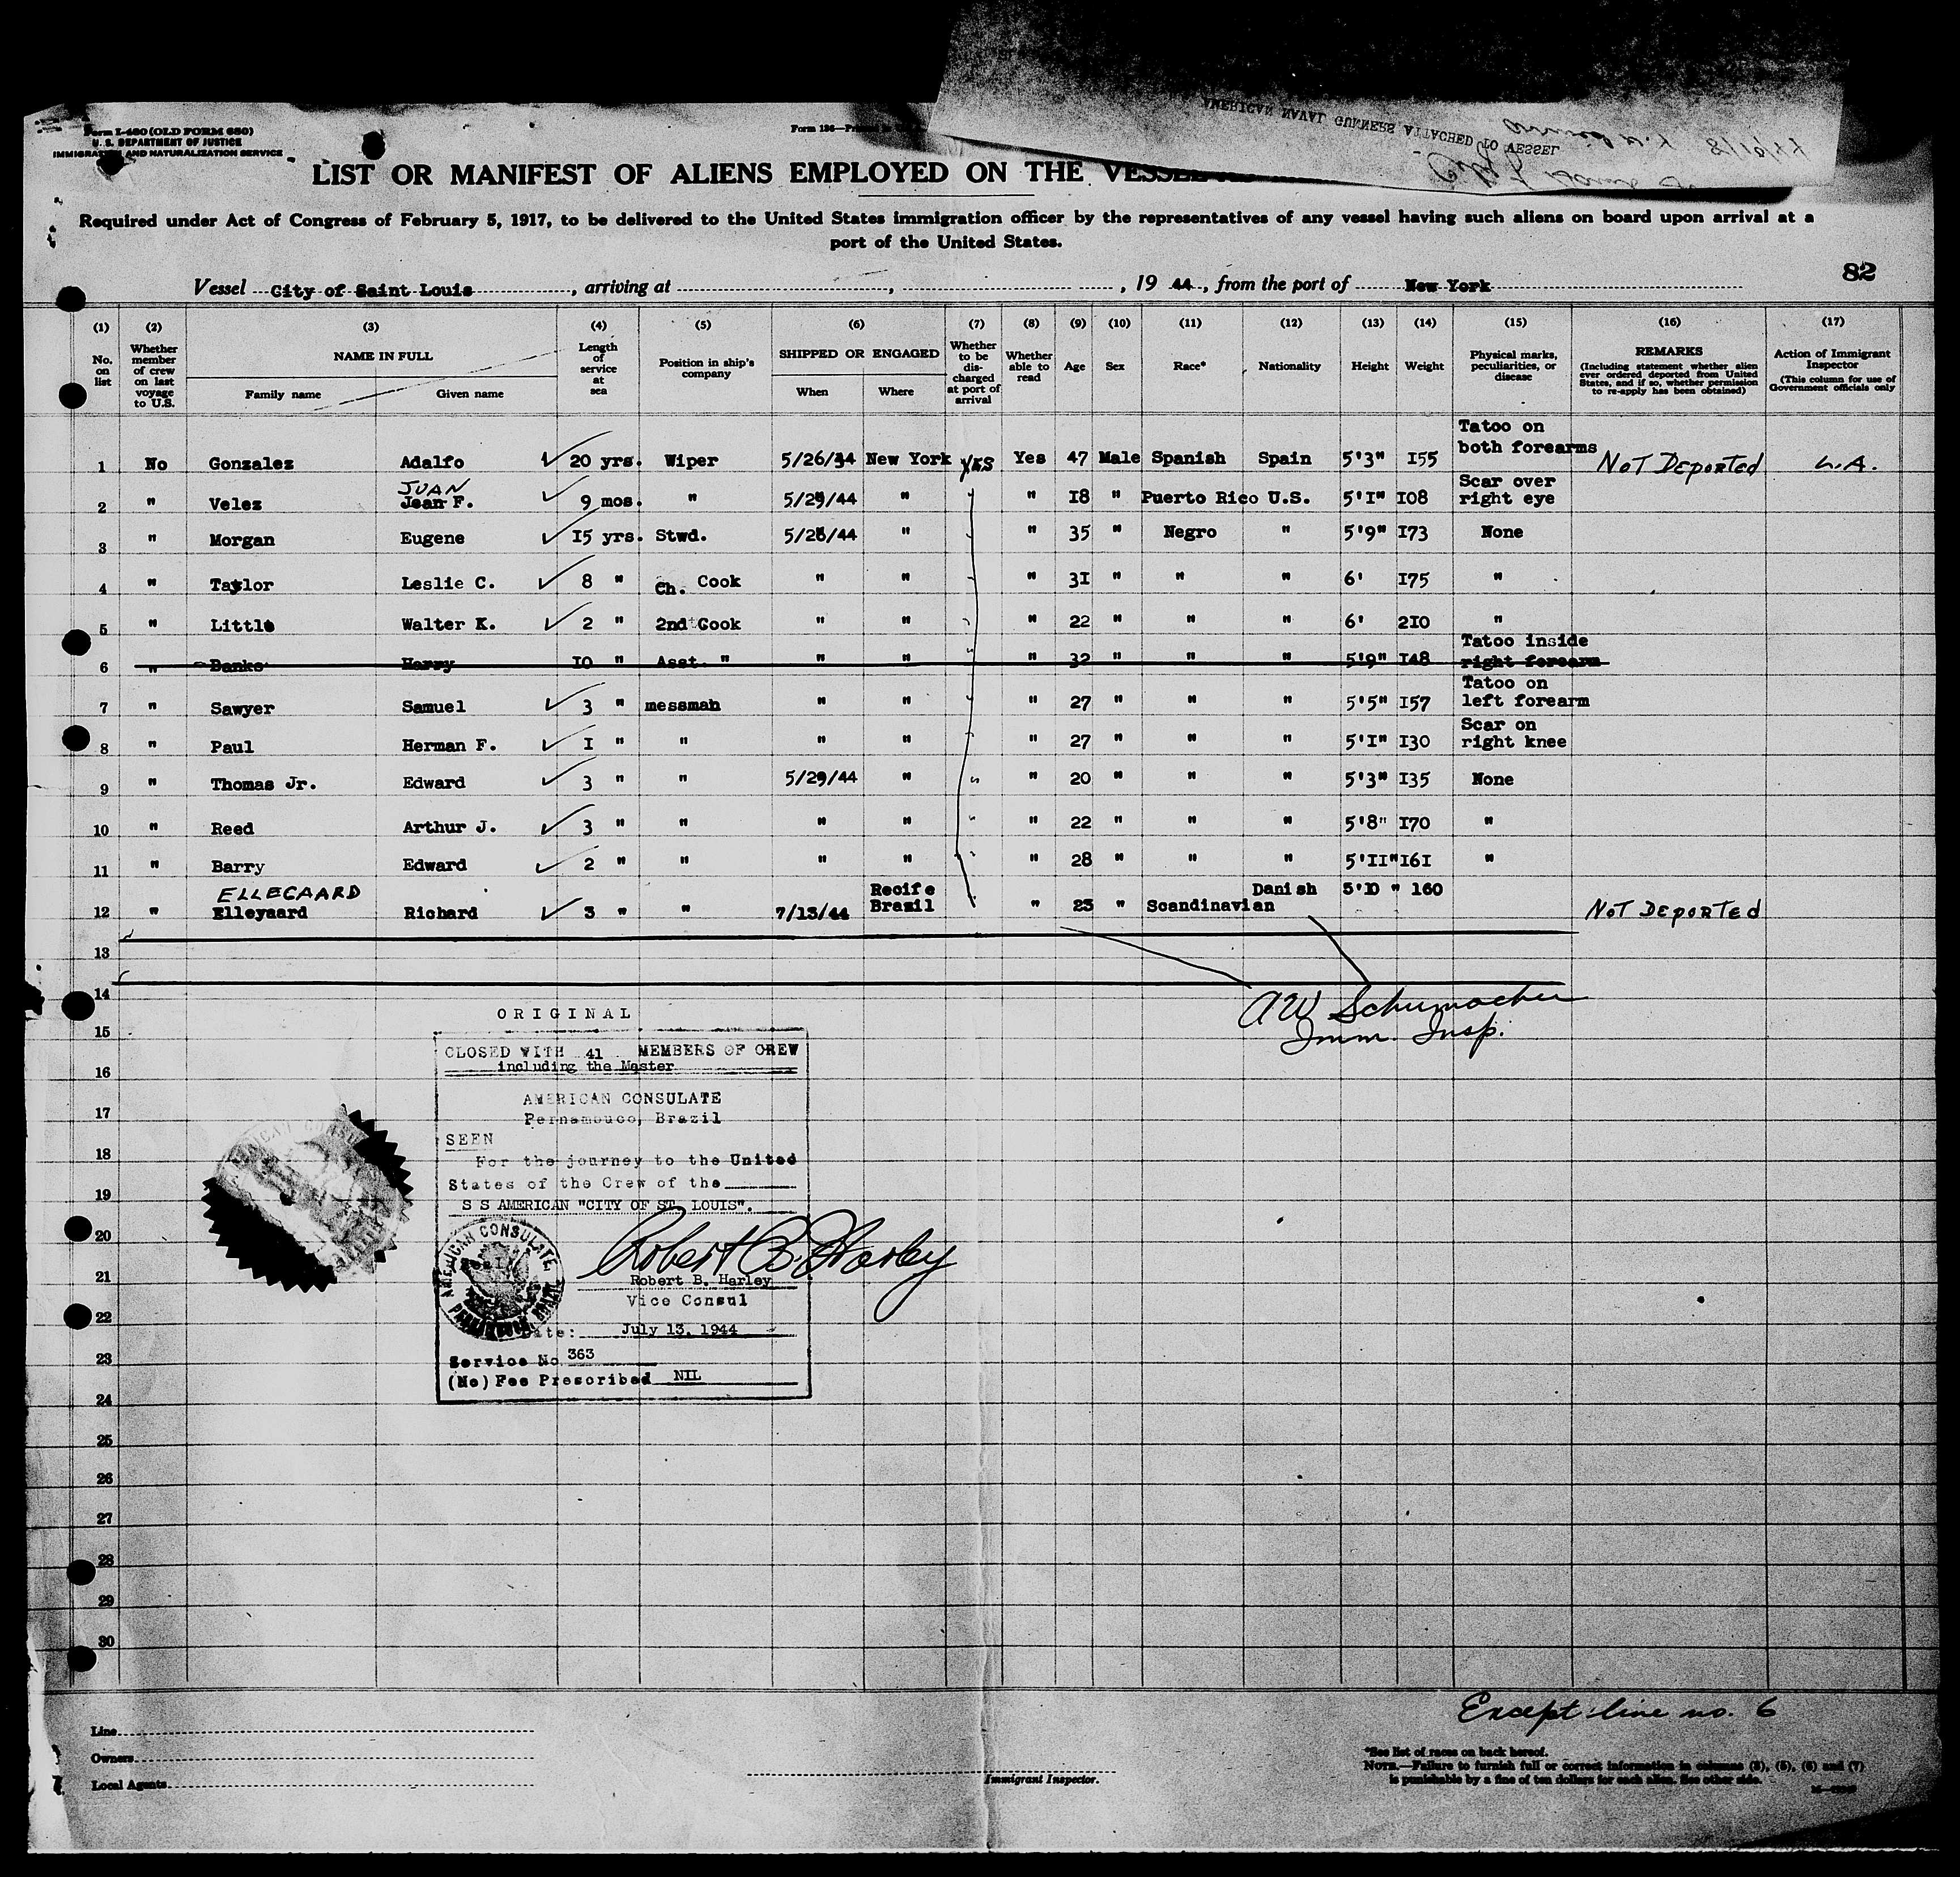 Form I-480 (OLD FORM 680)
U. S. DEPARTMENT OF JUSTICE
IMMIGRATION AND NATURALIZATION SERVICE
AMERICAN NAVAL GUNNERS ATTACHED TO VESSEL
LIST OR MANIFEST OF ALIENS EMPLOYED ON THE VESSEL
Required under Act of Congress of February 5, 1917, to be delivered to the United States immigration officer by the representatives of any vessel having such aliens on board upon arrival at a
port of the United States.
82
Vessel City of Saint Louis, arriving at , , 19 44, from the port of New York
(1) (2) (3) (4) (5) (6) (7) (8) (9) (10) (11) (12) (13) (14) (15) (16) (17)
No. on list Whether member of crew on last voyage to U.S. NAME IN FULL Family name Given name Length of service at sea Position in ship's company SHIPPED OR ENGAGED When Where Whether to be discharged at port of arrival Whether able to read Age Sex Race* Nationality Height Weight Physical marks, peculiarities, or disease REMARKS (Including statement whether alien ever ordered deported from United States, and if so, whether permission to re-apply has been obtained) Action of Immigrant Inspector (This column for use of Government officials only
1 No Gonzalez Adalfo 20 yrs. Wiper 5/26/44 New York YES Yes 47 Male Spanish Spain 5'3" 155 Tatoo on both forearms NOT DEPORTED L.A.
JUAN
2 " Velez Jean F. 9 mos. " 5/29/44 " " 18 " Puerto Rico U.S. 5'1" 108 Scar over right eye
3 " Morgan Eugene 15 yrs. Stwd. 5/28/44 " " 35 " Negro " 5'9" 173 None
4 " Taylor Leslie C. 8 " Ch. Cook " " " 31 " " " 6' 175 "
5 " Little Walter K. 2 " 2nd Cook " " " 22 " " " 6' 210 "
6 " Banks Harry 10 " Asst. " " " " 32 " " " 5'9" 148 Tatoo inside right forearm
7 " Sawyer Samuel 3 " messman " " " 27 " " " 5'5" 157 Tatoo on left forearm
8 " Paul Herman F. 1 " " " " " 27 " " " 5'1" 130 Scar on right knee
9 " Thomas Jr. Edward 3 " " 5/29/44 " " 20 " " " 5'3" 135 None
10 " Reed Arthur J. 3 " " " " " 22 " " " 5'8" 170 "
11 " Barry Edward 2 " " " " " 28 " " " 5'11" 161 "
ELLEGAARD
12 " Elleyaard Richard 3 " " 7/13/44 Recife Brazil " 23 " Scandinavian Danish 5'10 " 160 NOT DEPORTED
13
14
AW Schumacher
Imm. Insp.
ORIGINAL
15
CLOSED WITH 41 MEMBERS OF CREW
including the Master
16
AMERICAN CONSULATE
17
Pernambuco, Brazil
SEEN
18
For the journey to the United
States of the Crew of the
19
S S AMERICAN "CITY OF ST. LOUIS".
20
AMERICAN CONSULATE
Robert B. Harley
Robert B. Harley
21
Vice Consul
22
Date: July 13, 1944
23
Service No 363
(No) Fee Prescribed NIL
24
25
26
27
28
29
30
Except line no. 6
Line
Owners
Local Agents
Immigrant Inspector.
*See list of races on back hereof.
NOTE.—Failure to furnish full or correct information in columns (3), (5), (6) and (7)
is punishable by a fine of ten dollars for each alien. See other side.